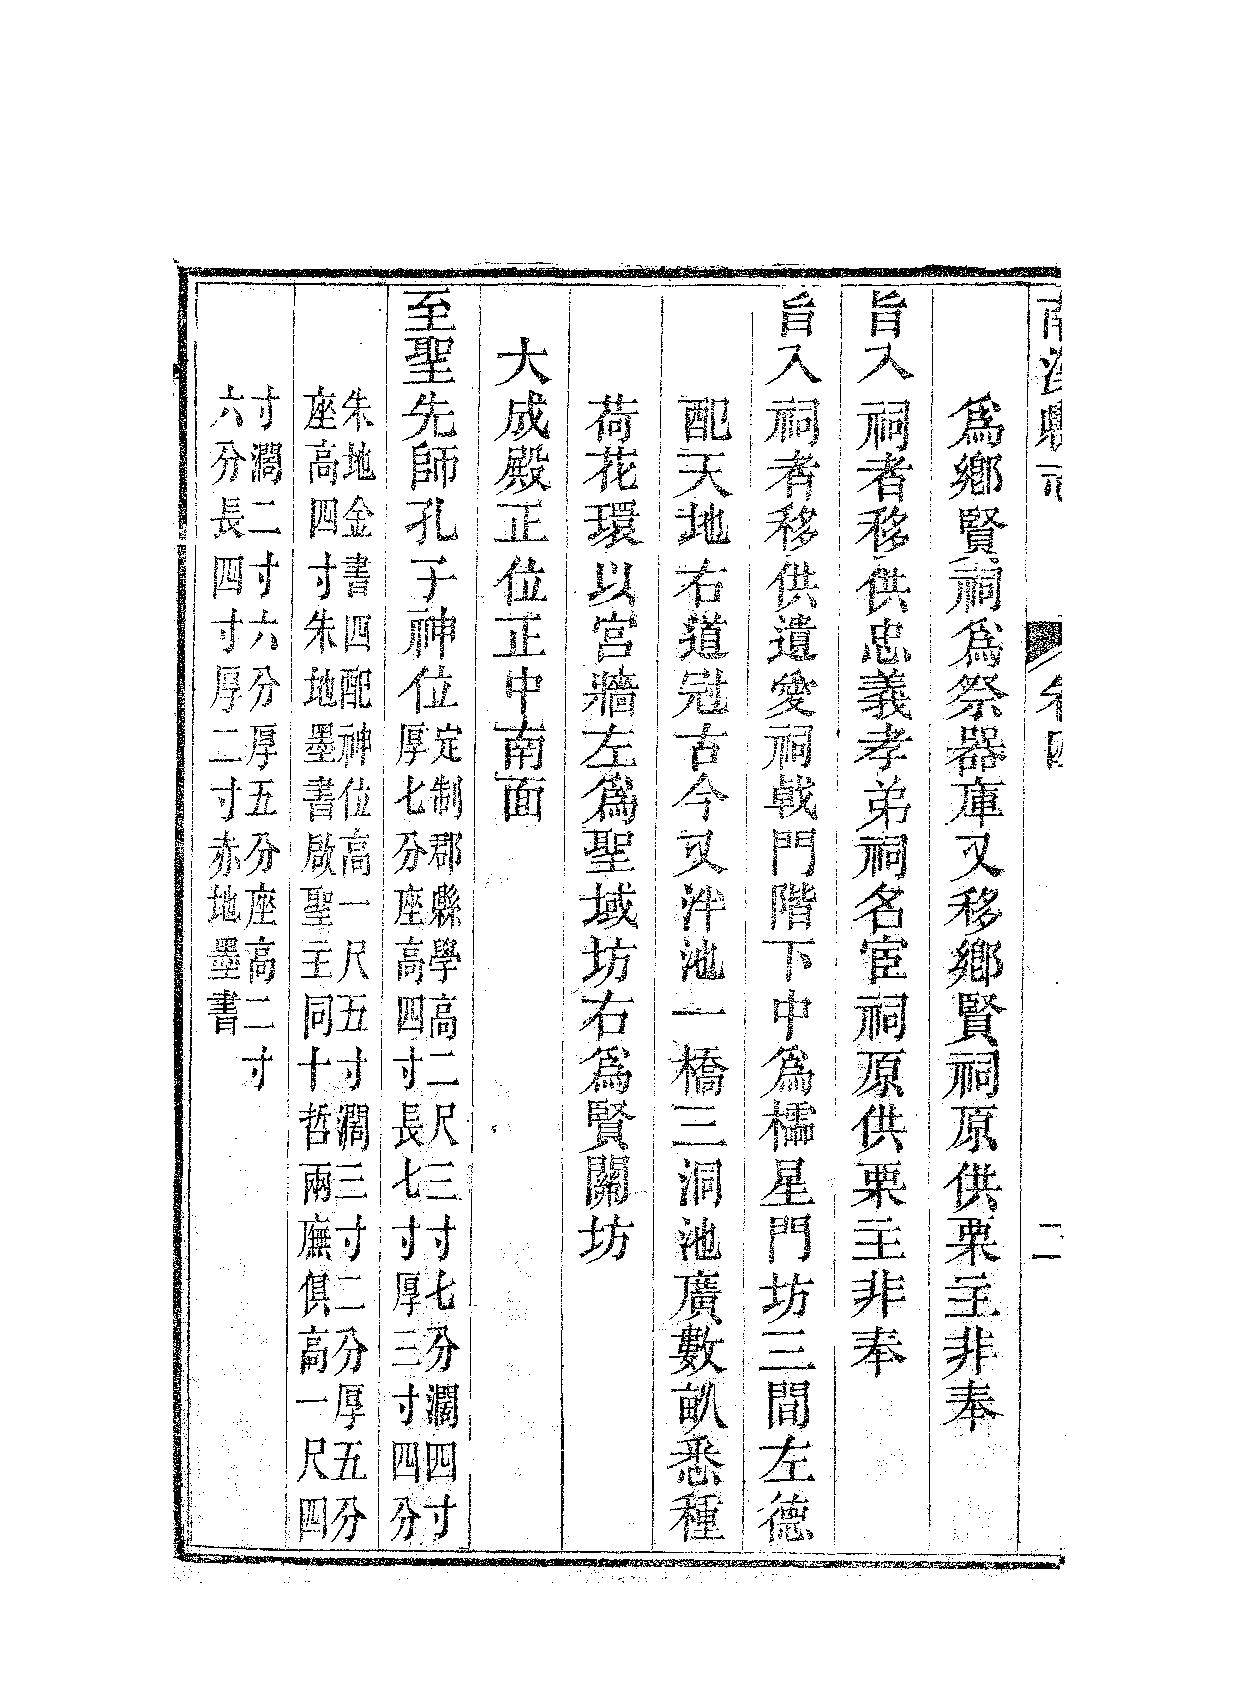 南溪縣志 卷四 二
爲鄉賢祠爲祭器庫又移鄉賢祠原供栗主非奉
旨入祠者移供忠義孝弟祠名宦祠原供栗主非奉
旨入祠者移供遺愛祠戟門階下中爲櫺星門坊三間左德
配天地右道冠古今又泮池一橋三洞池廣數畝悉種
荷花環以宮牆左爲聖域坊右爲賢關坊
大成殿正位正中南面
至聖先師孔子神位
定制郡縣學高二尺三寸七分濶四寸
厚七分座高四寸長七寸厚三寸四分
朱地金書四配神位高一尺五寸濶三寸二分厚五分
座高四寸朱地墨書啟聖主同十哲兩廡俱高一尺四
寸濶二寸六分厚五分座高二寸
六分長四寸厚二寸赤地墨書